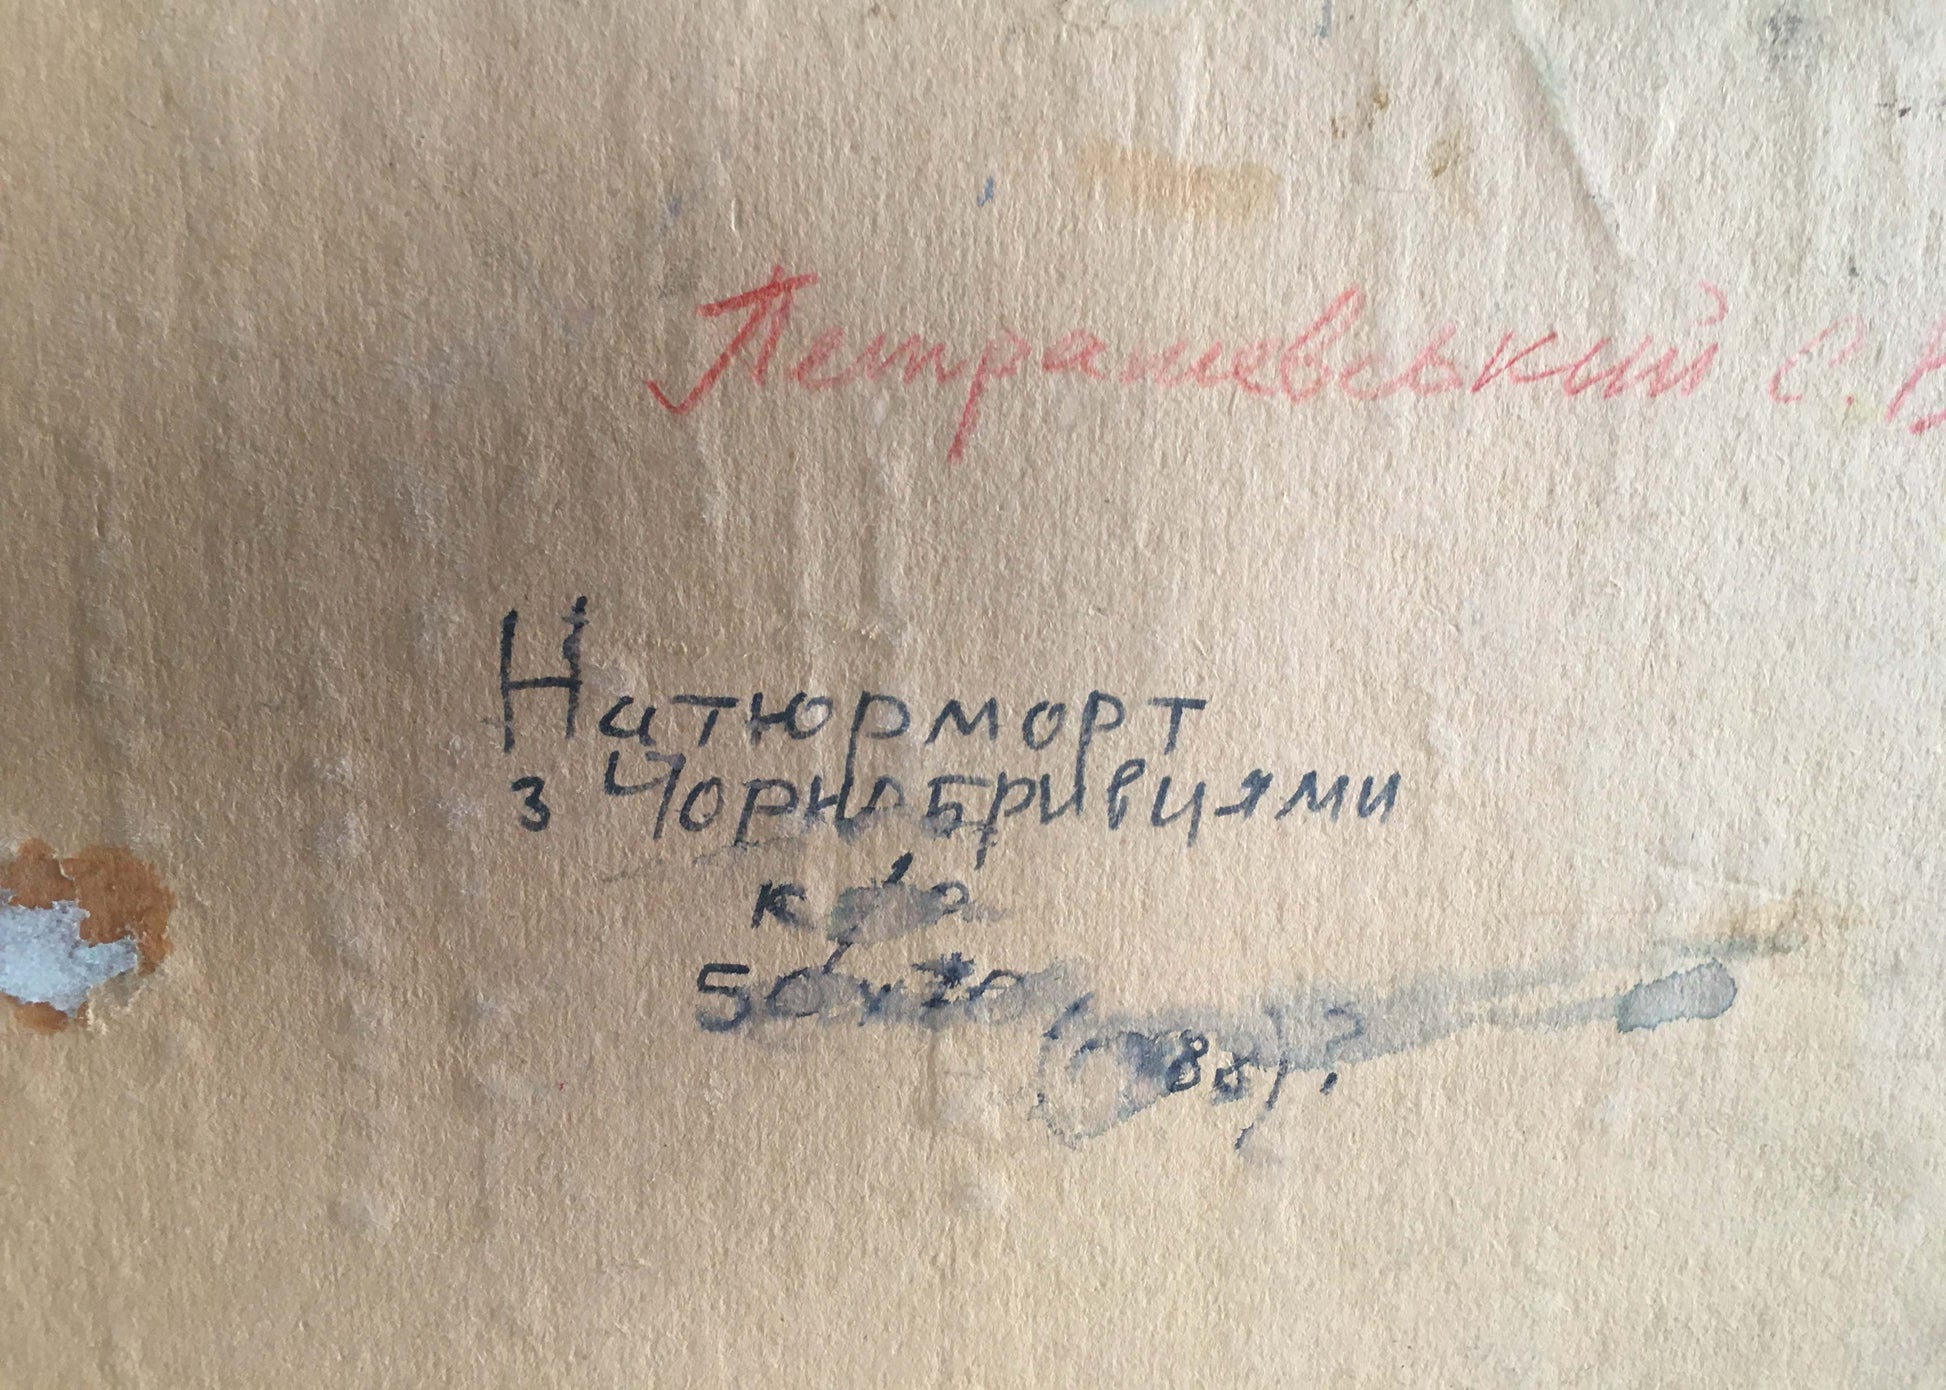 Петрашевський С. В
Натюрморт
з Чорнобривцями
к/о
50х70